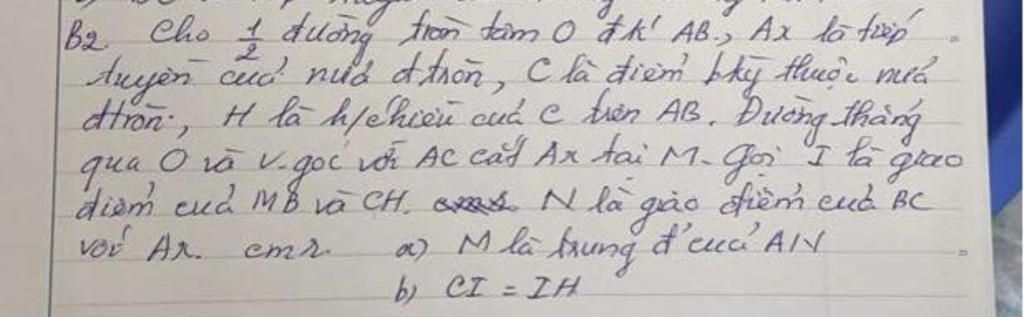 B2. Cho 1/2 đường tròn tâm O đk' AB, Ax là tiếp
tuyến của nửa đtròn, C là điểm bkỳ thuộc nửa
đtròn, H là h/chiếu của C trên AB. Đường thẳng
qua O và v.góc với AC cắt Ax tại M. Gọi I là giao
điểm của MB và CH. N là giao điểm của BC
với Ax. cmr a) M là trung đ' của AN
b) CI = IH